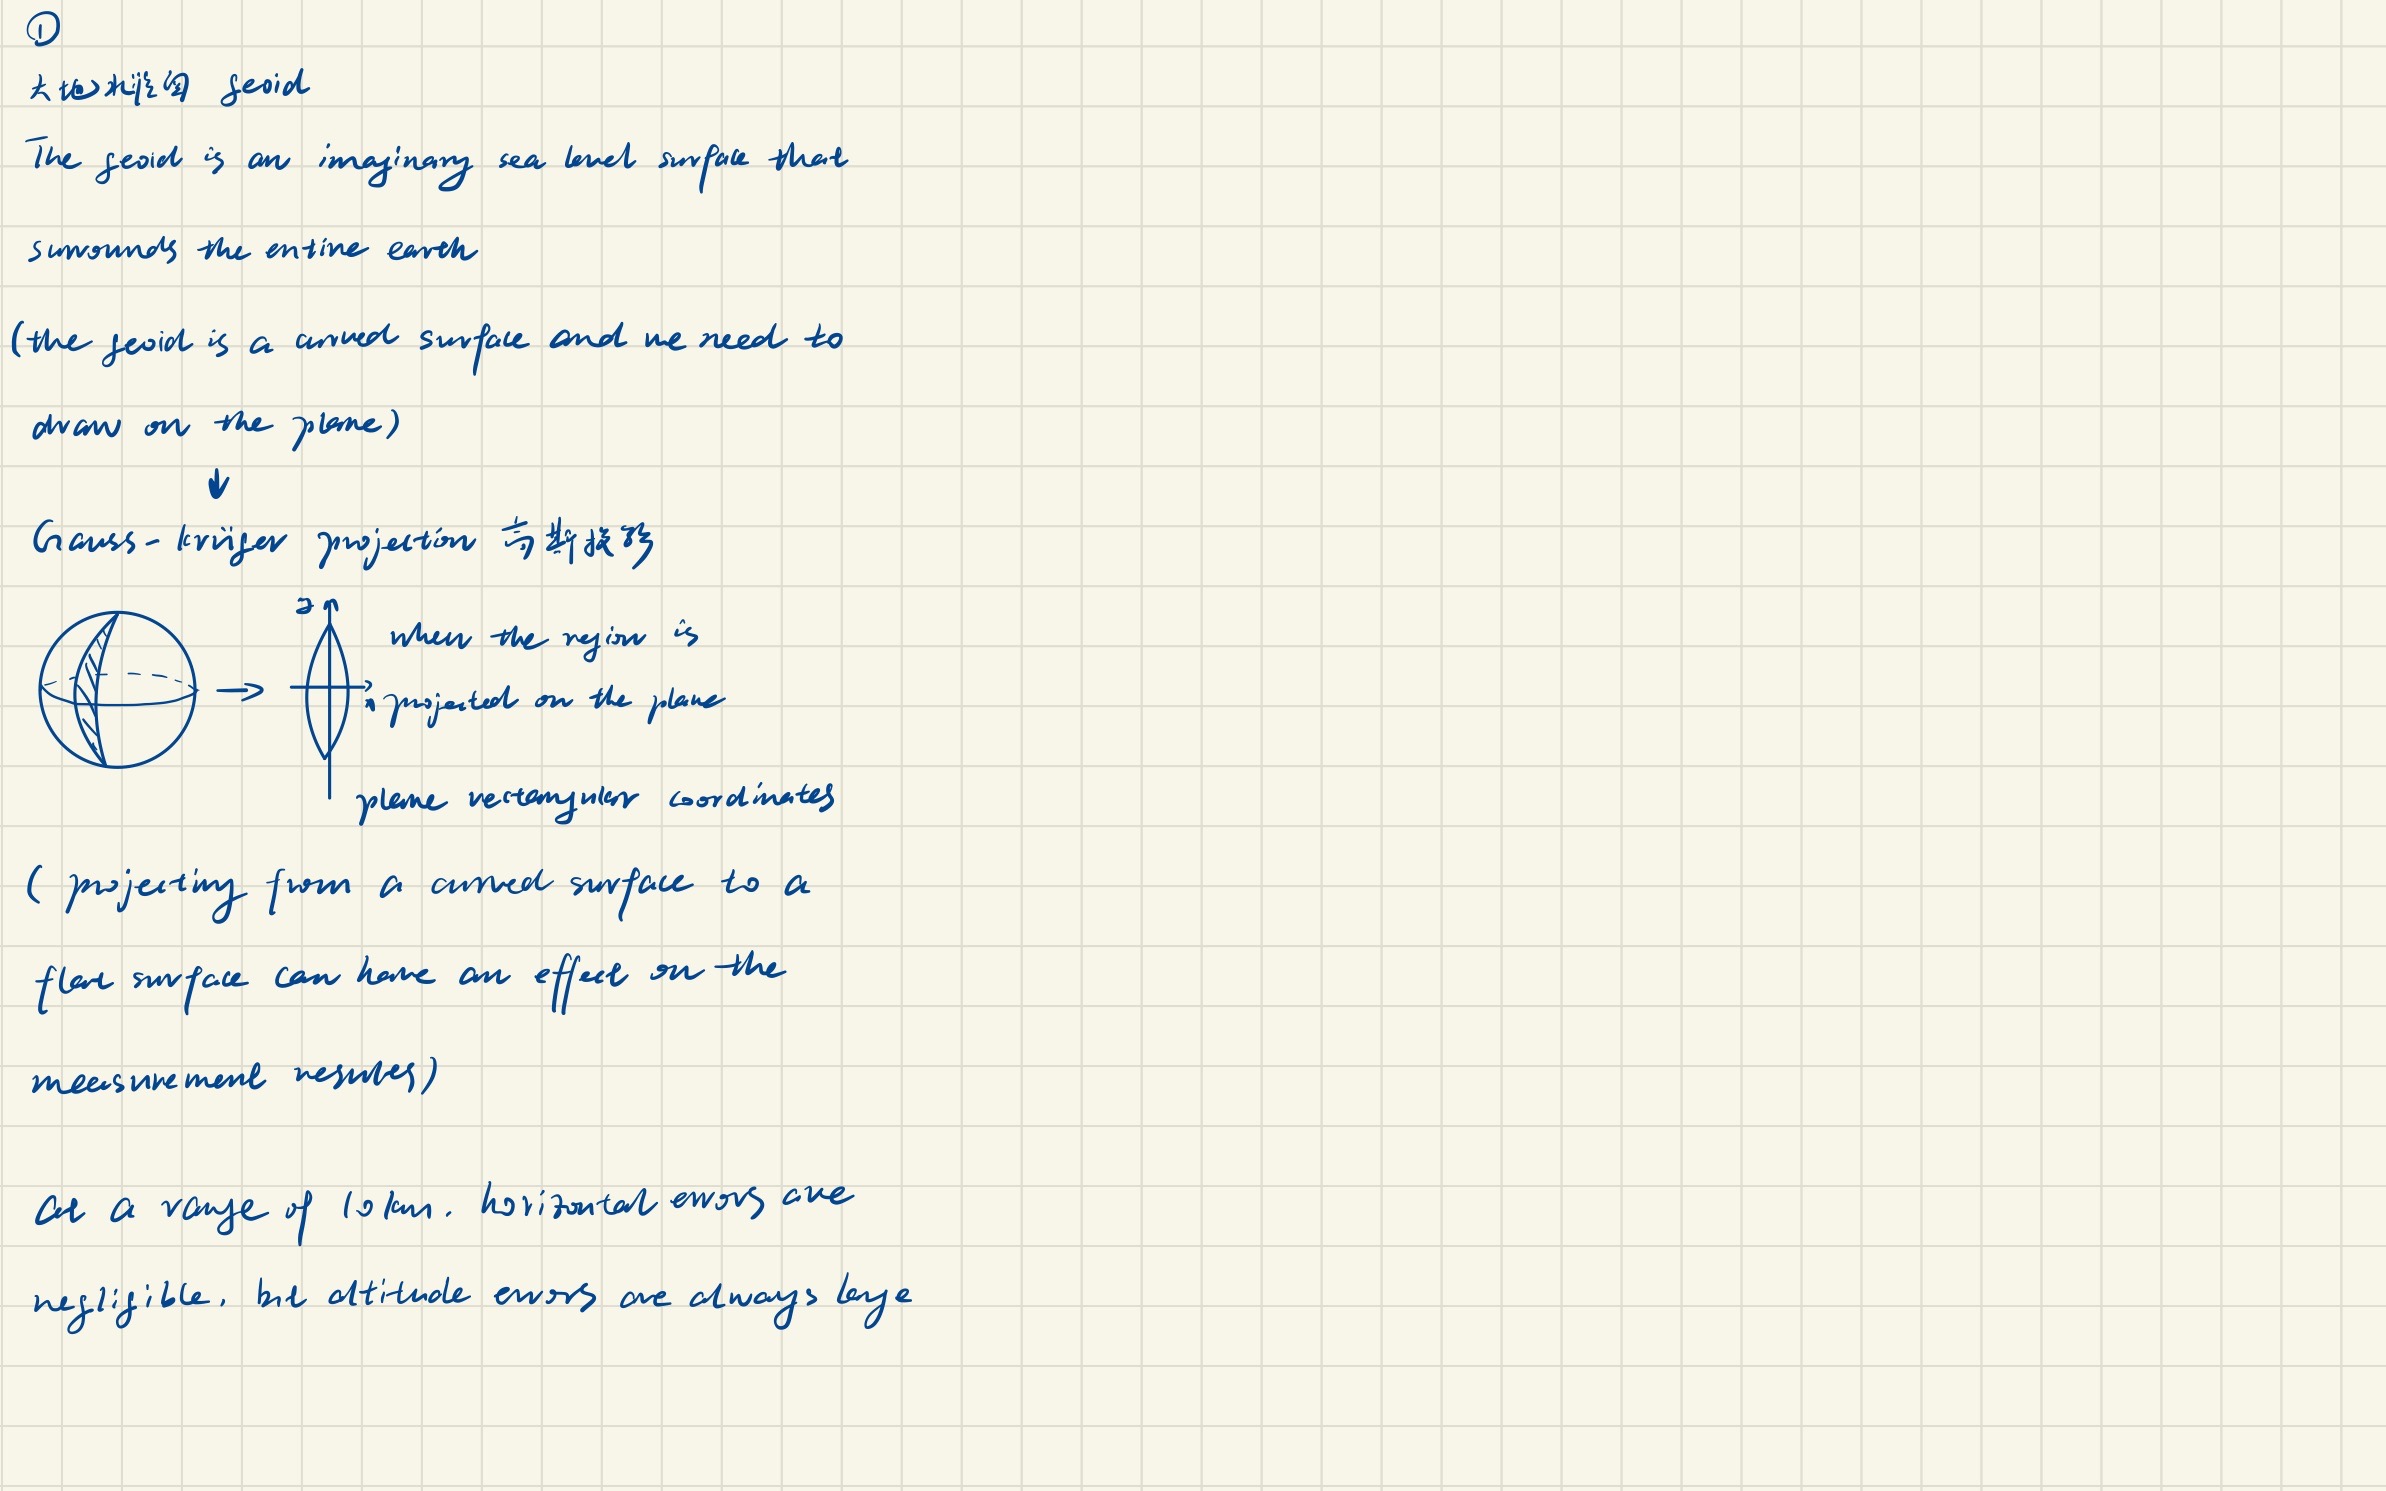 ①
大地水准面 geoid
The geoid is an imaginary sea level surface that
surrounds the entire earth
(the geoid is a curved surface and we need to
draw on the plane)
↓
Gauss-krüger projection 高斯投影
when the region is
projected on the plane
x
plane rectangular coordinates
(projecting from a curved surface to a
flat surface can have an effect on the
measurement results)
at a range of 10km. horizontal errors are
negligible. but altitude errors are always large